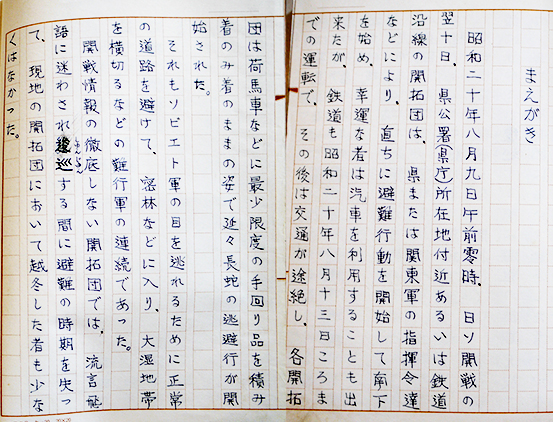 まえがき
昭和二十年八月九日午前零時、日ソ開戦の
翌十日、県公署(県庁)所在地付近あるいは鉄道
沿線の開拓団は、県または関東軍の指揮令達
などにより、直ちに避難行動を開始して南下
を始め、幸運な者は汽車を利用することも出
来たが、鉄道も昭和二十年八月十三日ころま
での運転で、その後は交通が途絶し、各開拓
団は荷馬車などに最少限度の手回り品を積み
着のみ着のままの姿で延々長蛇の逃避行が開
始された。
それもソビエト軍の目を逃れるために正常
の道路を避けて、密林などに入り、大湿地帯
を横切るなどの難行軍の連続であった。
開戦情報の徹底しない開拓団では、流言飛
語に迷わされ逡巡する間に避難の時期を失っ
て、現地の開拓団において越冬した者も少な
くはなかった。